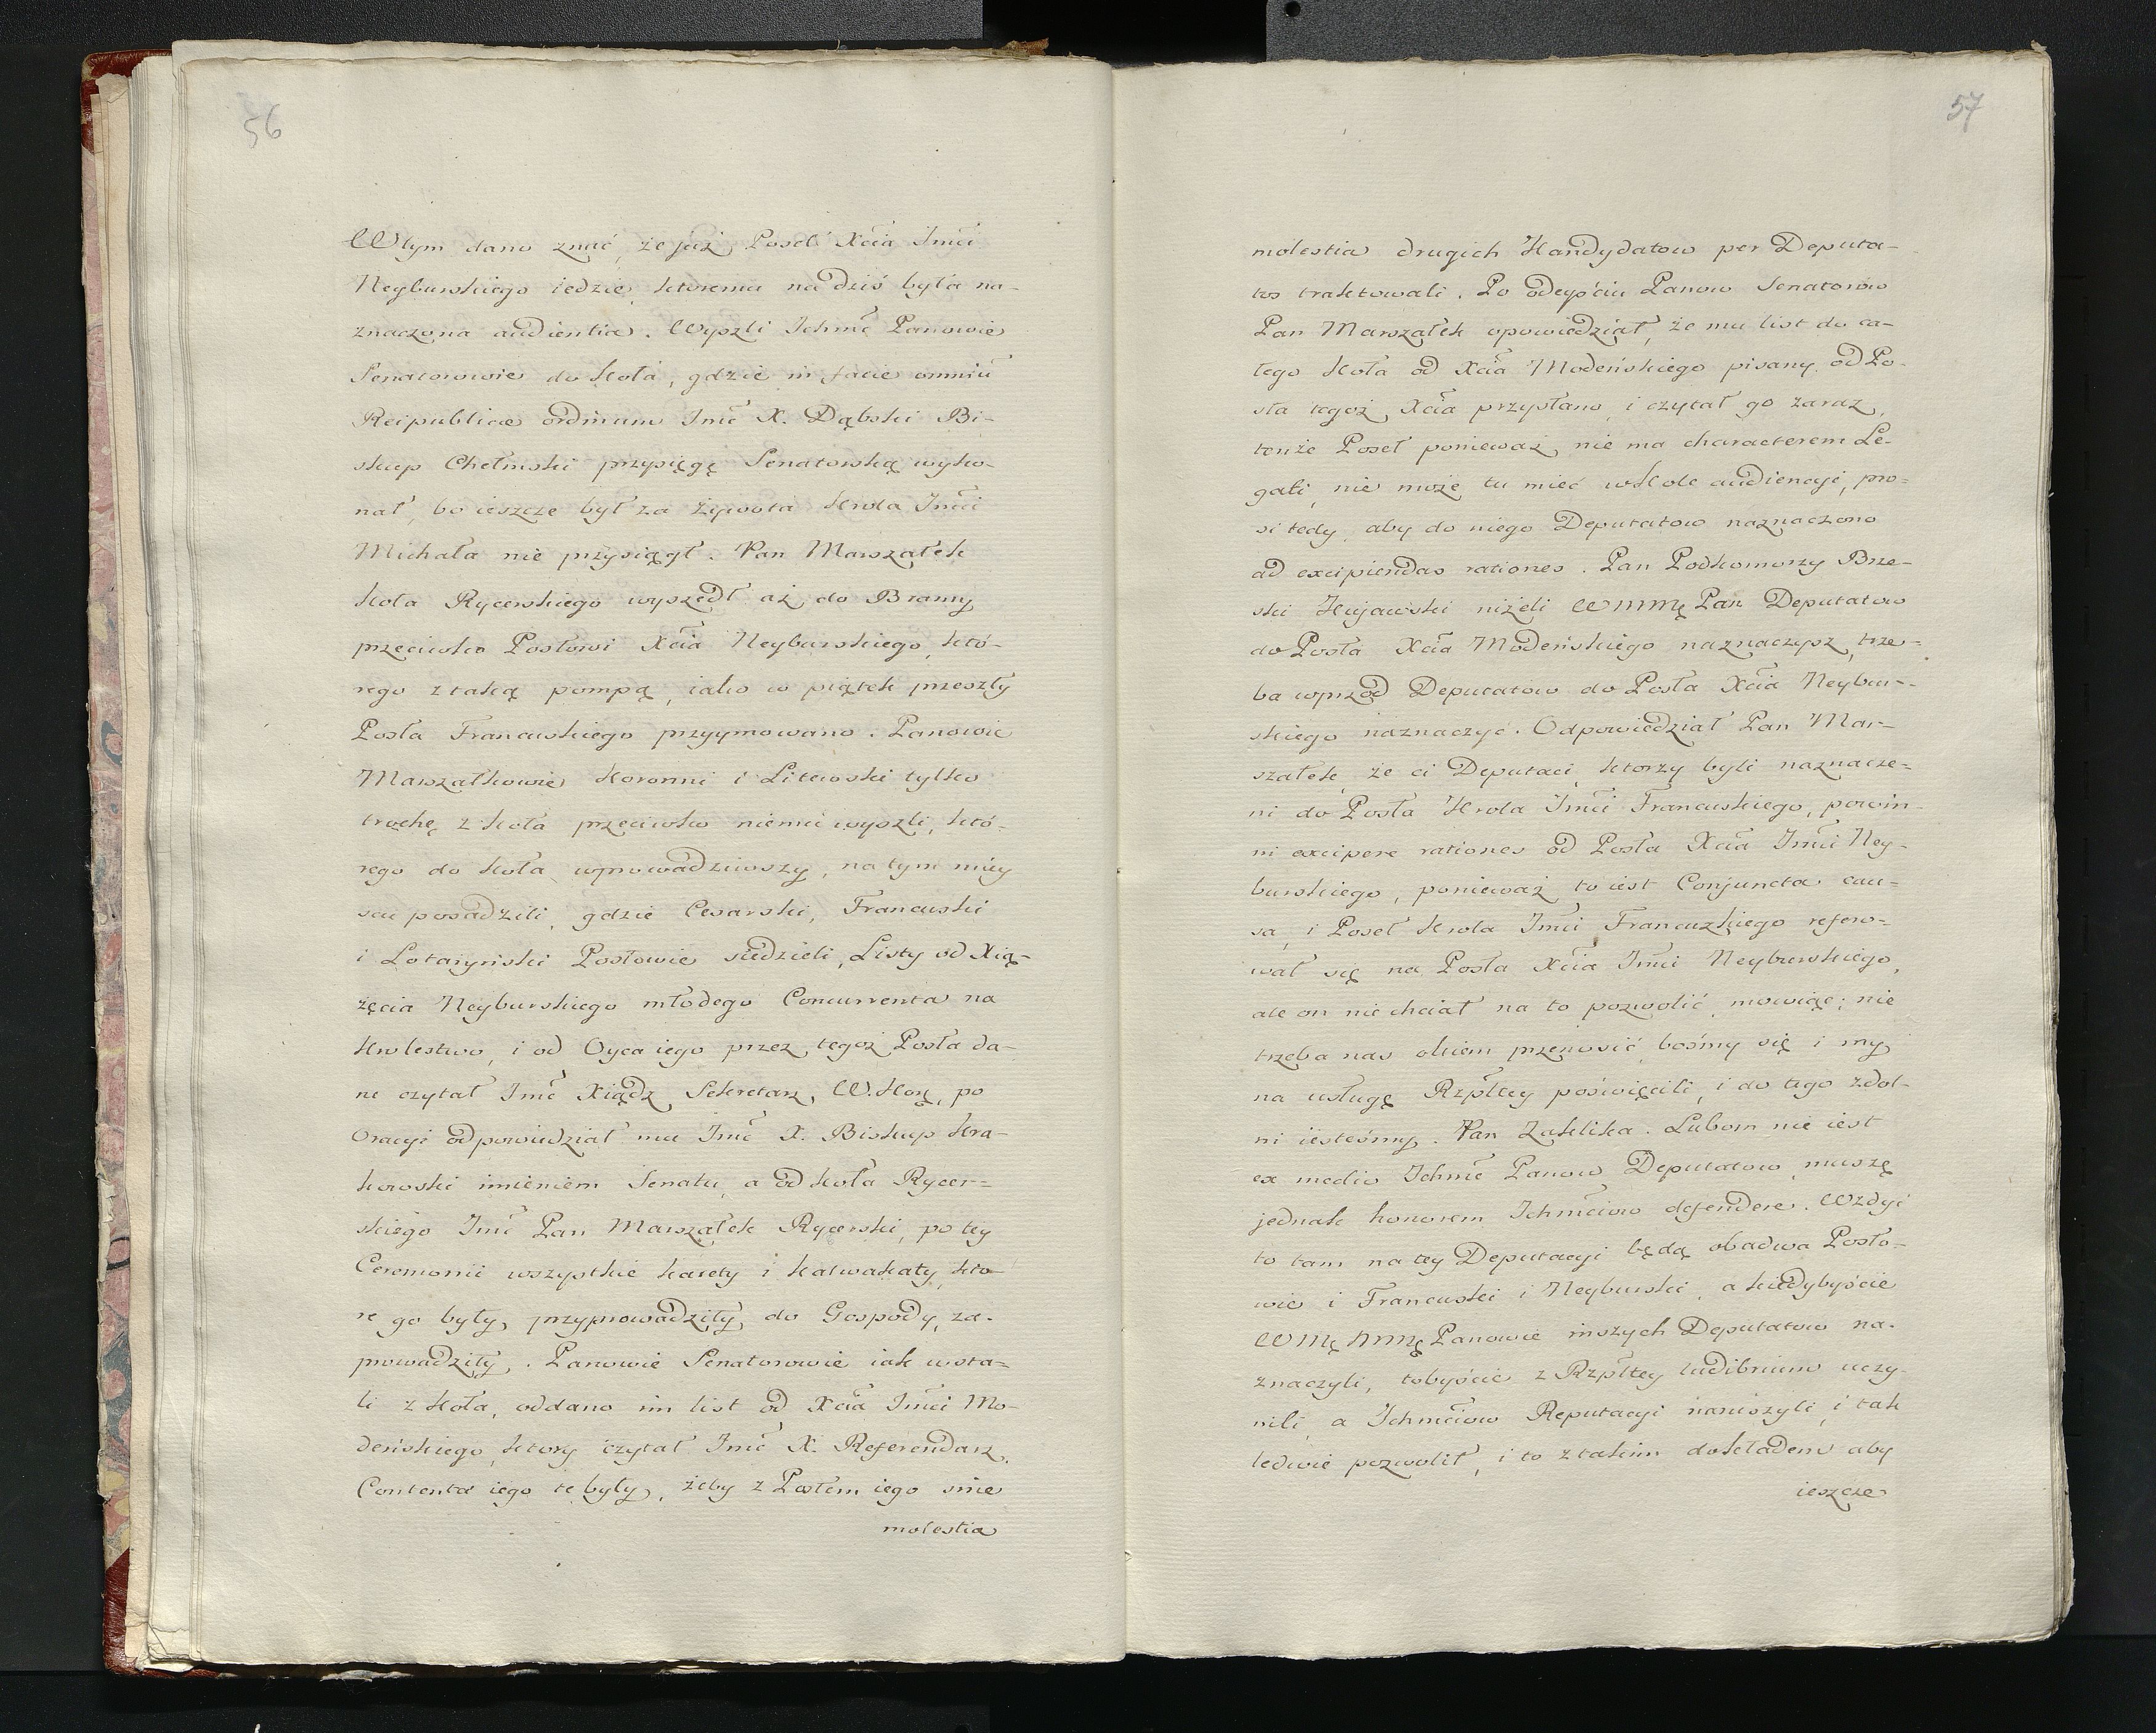 56
Wtym dano znać, że już Poseł Xcia Jmci
Neyburskiego iedzie, ktoremu na dziś była na-
znaczona audientia. Wyszli Ichmć Panowie
Senatorowie do Koła, gdzie in facie omniū
Reipublicæ ordinum Jmć X. Dąbski Bi-
skup Chełmski przysięgę Senatorską wyko-
nał, bo ieszcze był za żywota Krola Jmci
Michała nie przysiągł. Pan Marszałek
Koła Rycerskiego wyszedł aż do Bramy
przeciwko Posłowi Xcia Neyburskiego, któ-
rego z taką pompą, iako w piątek przeszły
Posła Francuskiego przyymowano. Panowie
Marszałkowie Koronni i Litewski tylko
trochę z Koła przeciwko niemu wyszli, któ-
rego do Koła wprowadziwszy, na tym miey
scu posadzili, gdzie Cesarski, Francuski
i Lotaryński Posłowie siedzieli, Listy od Xią-
żęcia Neyburskiego młodego Concurrenta na
Krolestwo, i od Oyca iego przez tegoż Posła da-
ne czytał Jmć Xiądz Sekretarz W. Kor, po
Oracyi odpowiedział mu Jmć X. Biskup Kra-
kowski imieniem Senatu, a od Koła Rycer-
skiego Jmć Pan Marszałek Rycerski, po tey
Ceremonii wszystkie karety i kalwakaty, kto-
re go były przyprowadziły, do Gospody, za-
prowadziły. Panowie Senatorowie iak wsta-
li z Koła, oddano im list od Xcia Jmci Mo-
deńskiego, ktory czytał Jmć X. Referendarz.
Contenta iego te były, żeby z Posłem iego sine
molestia
57
molestia drugich Kandydatow per Deputa-
tos traktowali. Po odeyściu Panow Senatorow
Pan Marszałek opowiedział, że mu list do ca-
łego Koła od Xcia Modeńskiego pisany, od Po-
sła tegoż Xcia przysłano, i czytał go zaraz,
tenże Poseł ponieważ nie ma characterem Le-
gati, nie może tu mieć w Kole audiencyi, pro-
si tedy, aby do niego Deputatow naznaczono
ad excipiendas rationes. Pan Podkomorzy Brze-
ski Kujawski niżeli Wmmę Pan Deputatow
do Posła Xcia Modeńskiego naznaczysz, trze-
ba wprzod Deputatow do Posła Xcia Neybur-
skiego naznaczyć. Odpowiedział Pan Mar-
szałek że ci Deputaci, ktorzy byli naznacze-
ni do Posła Krola Jmci Francuskiego, powin-
ni excipere rationes od Posła Xcia Jmci Ney-
burskiego, ponieważ to iest Conjuncta cau-
sa, i Poseł Krola Jmci Francuzkiego refero-
wał się na Posła Xcia Jmci Neyburskiego,
ale on nie chciał na to pozwolić, mowiąc; nie
trzeba nas okiem przenosić, bośmy się i my
na usługę Rzpltey poświęcili, i do tego zdol-
ni iesteśmy. Pan Zaklika. Lubom nie iest
ex medio Ichmć Panow Deputatow, muszę
jednak honorem Ichmciow defendere. Wzdyć
to tam na tey Deputacyi będą obadwa Posło-
wie i Francuski i Neyburski, a kiedybyście
Wmę mmę Panowie inszych Deputatow na-
znaczyli, tobyście z Rzpltey ludibrium uczy-
nili, a Ichmciow Reputacyi naruszyli, i tak
ledwie pozwolił, i to z takim dokładem aby
ieszcze